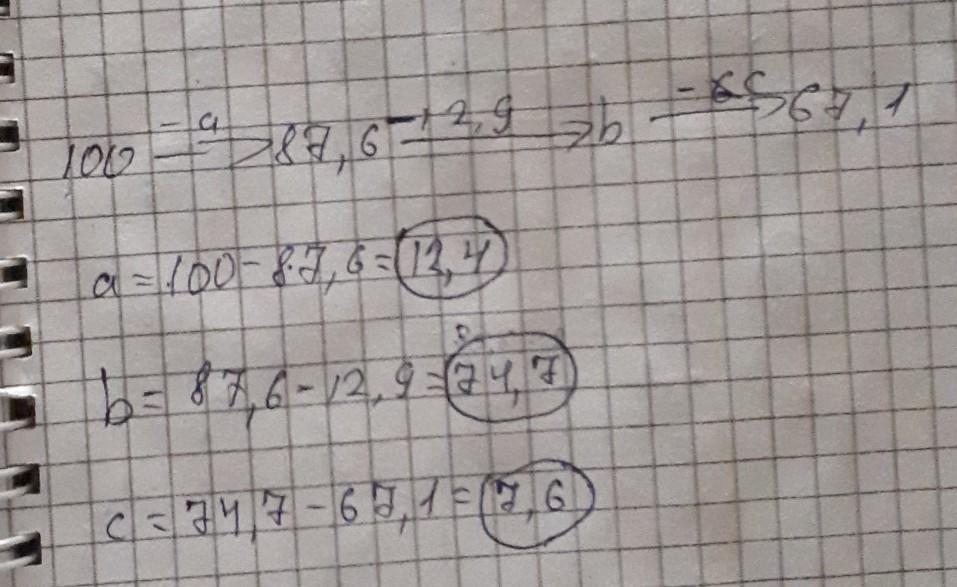 100 —-a→ 87,6 —-12,9→ b —-c→ 67,1
a = 100 - 87,6 = 12,4
b = 87,6 - 12,9 = 74,7
c = 74,7 - 67,1 = 7,6